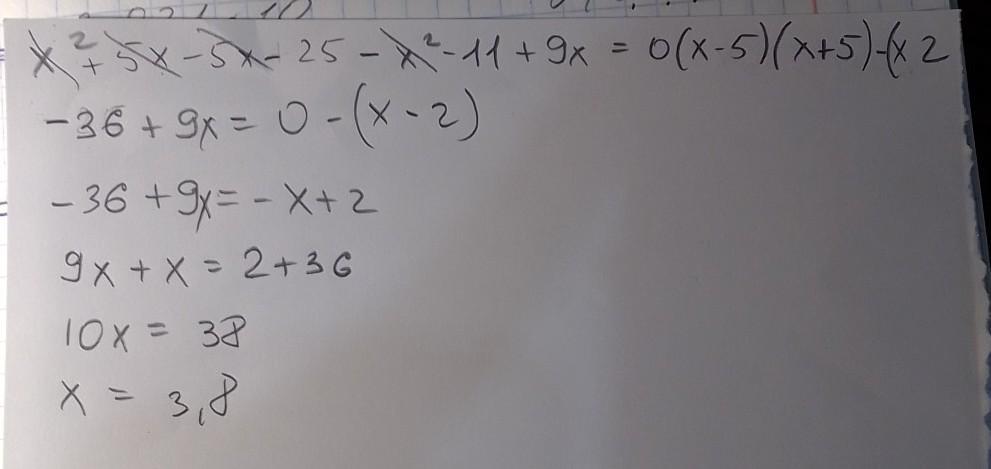 x² + 5x - 5x - 25 - x² - 11 + 9x = 0(x-5)(x+5)-(x 2
-36 + 9x = 0 - (x - 2)
-36 + 9x = - x + 2
9x + x = 2 + 36
10x = 38
x = 3,8